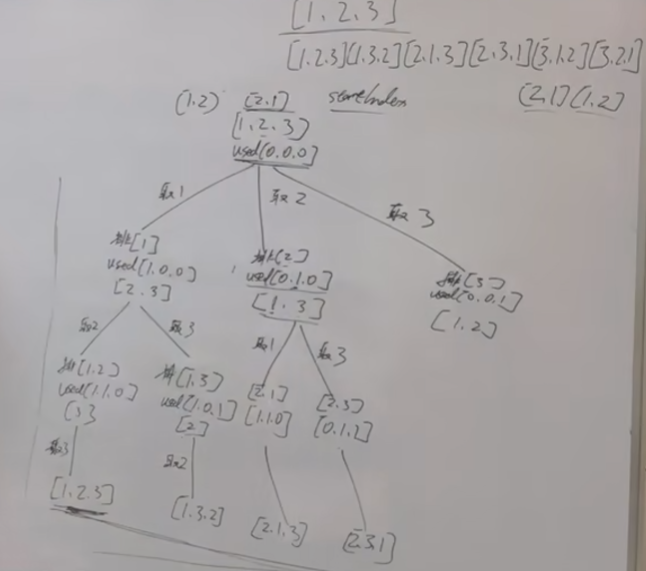 [1.2.3]
[1.2.3][1.3.2][2.1.3][2.3.1][3.1.2][3.2.1]
(1.2) [2.1] startIndex [2.1][1.2]
[1.2.3]
used[0.0.0]
取1 取2 取3
排[1] 排[2] 排[3]
used[1.0.0] used[0.1.0] used[0.0.1]
[2.3] [1.3] [1.2]
取2 取3 取1 取3
排[1.2] 排[1.3] [2.1] [2.3]
used[1.1.0] used[1.0.1] [1.1.0] [0.1.1]
[3] [2]
取3 取2
[1.2.3] [1.3.2] [2.1.3] [2.3.1]